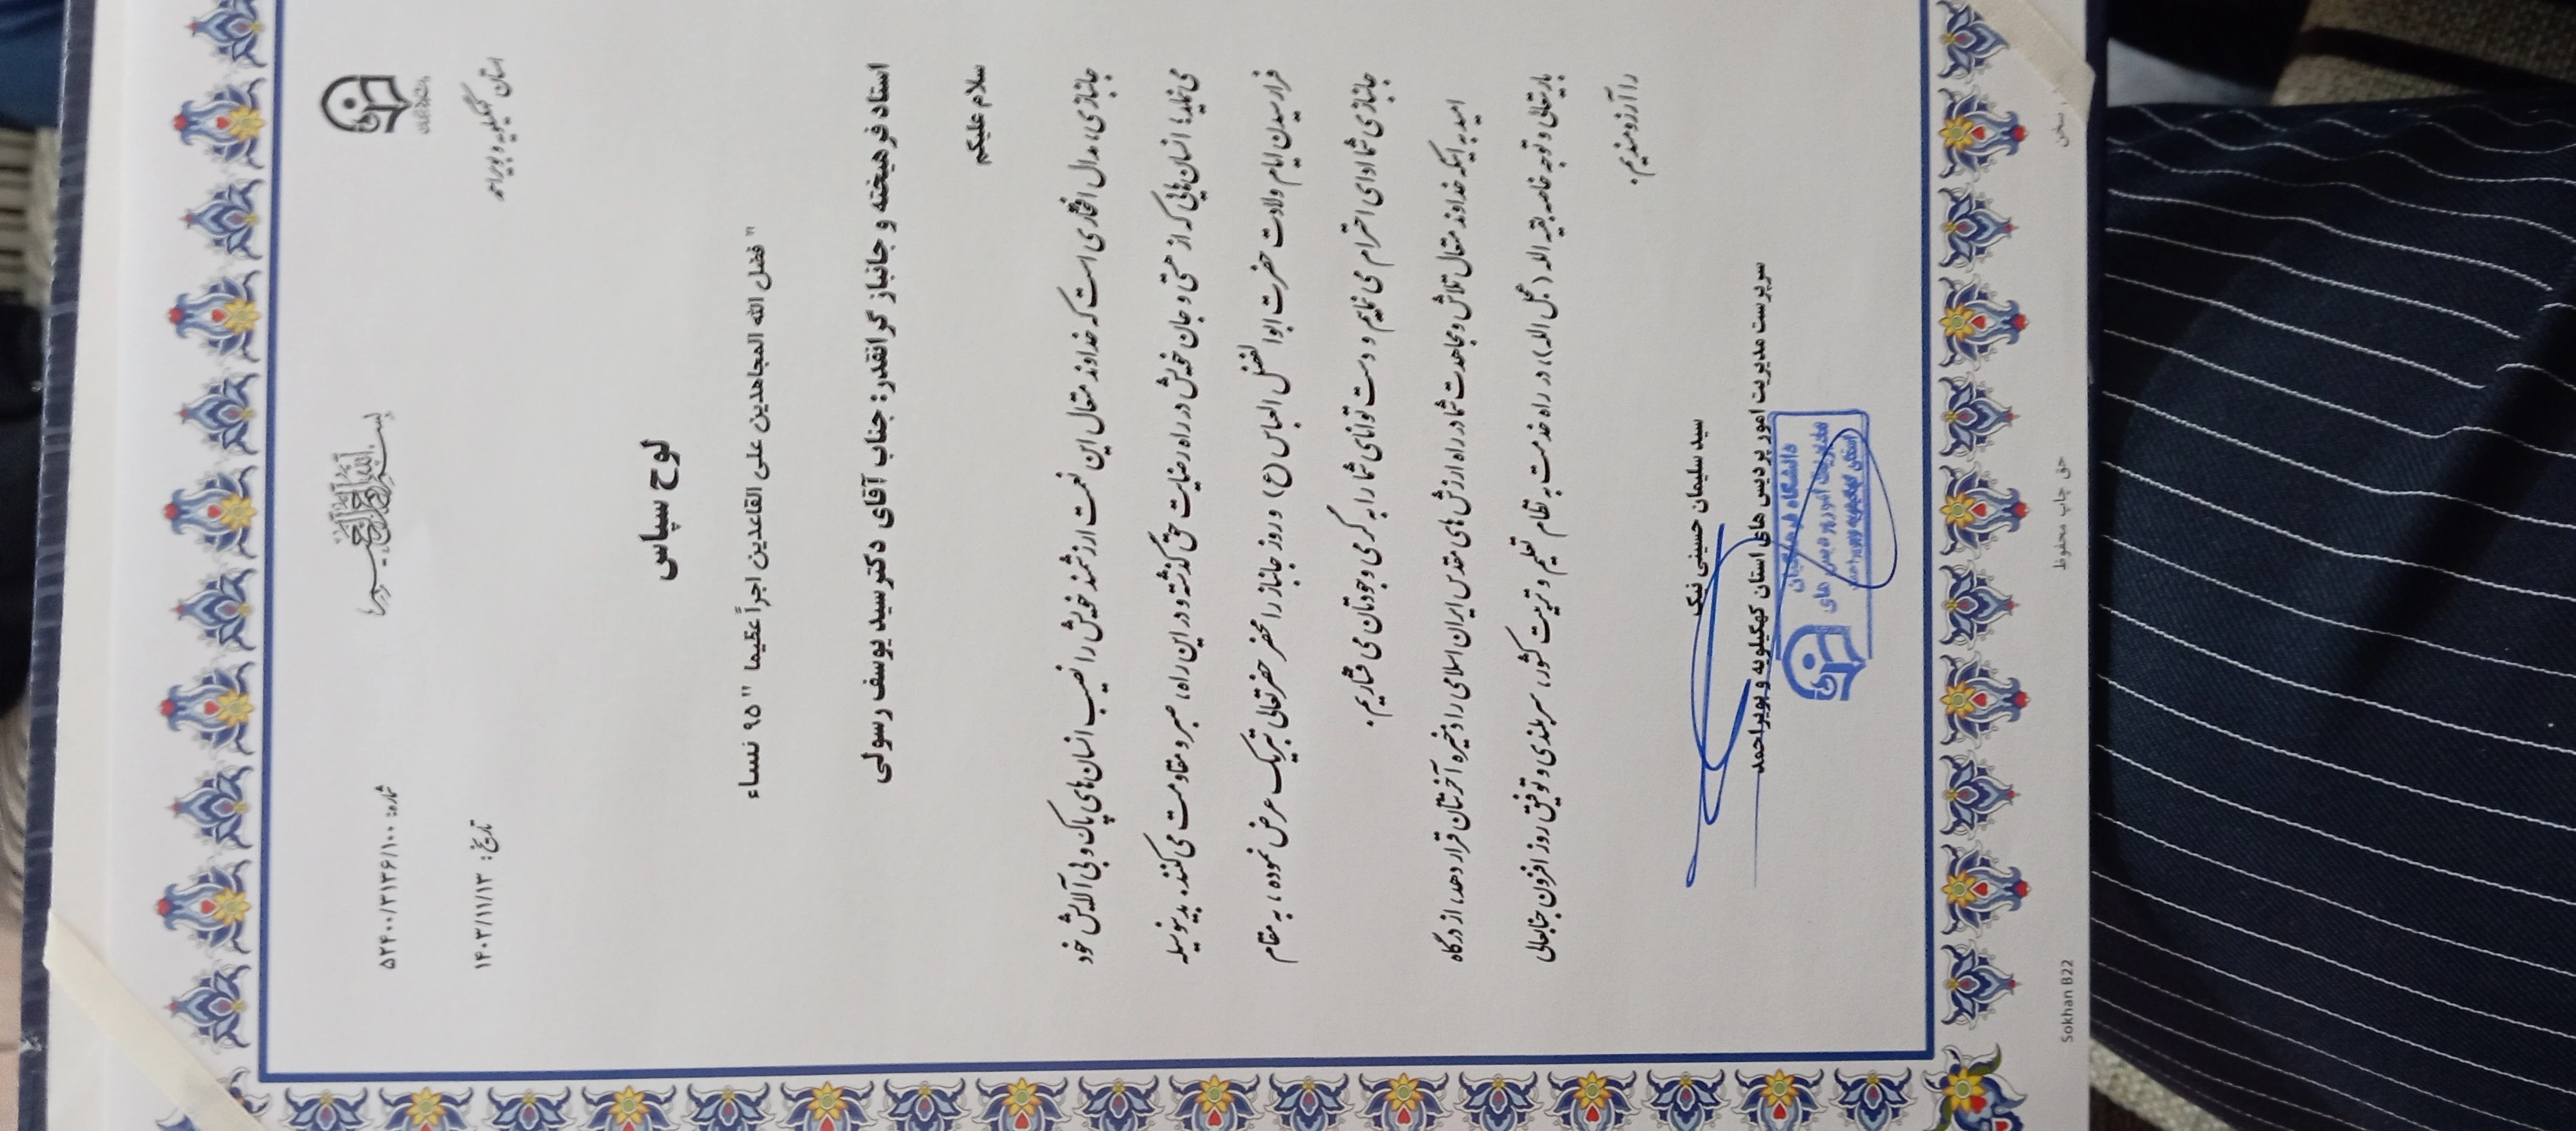 بسم الله الرحمن الرحیم
استان کهگیلویه و بویراحمد
شماره: ۵۲۴۰۰/۳۱۳۶/۱۰۰
تاریخ: ۱۴۰۳/۱۱/۱۳
لوح سپاس
" فضل الله المجاهدین علی القاعدین اجراً عظیما " ۹۵ نساء
استاد فرهیخته و جانباز گرانقدر: جناب آقای دکتر سید یوسف رسولی
سلام علیکم
جانبازی، مدال افتخاری است که خداوند متعال این نعمت ارزشمند خویش را نصیب انسان های پاک و بی آلایش خود
می نماید؛ انسان هایی که از هستی و جان خویش در راه رضایت حق گذشته و در این راه، صبر و مقاومت می کنند. بدینوسیله
فرارسیدن ایام ولادت حضرت ابوا لفضل العباس (ع) و روز جانباز را محضر حضرتعالی تبریک عرض نموده، به مقام
جانبازی شما ادای احترام می نمایم و دست توانای شما را به گرمی وجودتان می فشاریم.
امید به اینکه خداوند متعال تلاش و مجاهدت شما در راه ارزش های مقدس ایران اسلامی را ذخیره آخرتتان قرار دهد، از درگاه
باریتعالی و توجه خاصه بقیه الله (عجل الله)، در راه خدمت به نظام تعلیم و تربیت کشور، سربلندی و توفیق روز افزون جنابعالی
را آرزومندیم.
سید سلیمان حسینی نیک
سرپرست مدیریت امور پردیس های استان کهگیلویه و بویراحمد
دانشگاه فرهنگیان
مدیریت امور پردیس های
استان کهگیلویه و بویراحمد
سخن
حق چاپ محفوظ
Sokhan B22